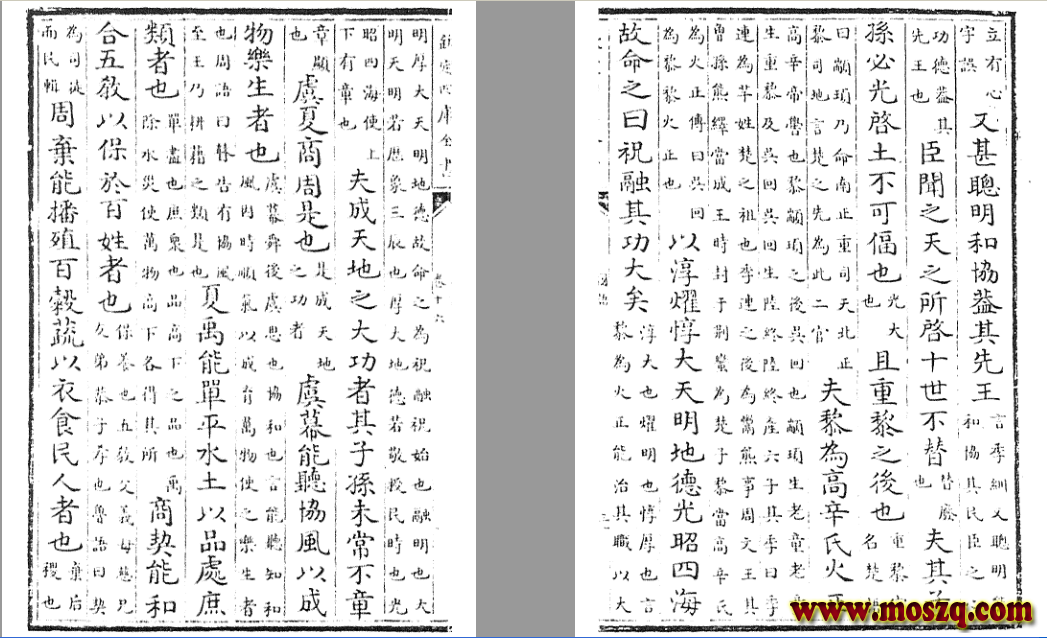 立有心字誤又甚聰明和協蓋其先王言季紃又聰明能和協其民臣之
功德蓋其先王也臣聞之天之所啓十世不替替廢也夫其子
孫必光啓土不可偪也光大也且重黎之後也重黎名楚
曰顓頊乃命南正重司天北正黎司地言楚之先為此二官夫黎為高辛氏火正
高辛帝嚳也黎顓頊之後吳回也顓頊生老童老童生重黎及吳回吳回生陸終陸終產六子其季曰季
連為羋姓楚之祖也季連之後為鬻熊事周文王其曾孫熊繹當成王時封于荊蠻為楚子黎當高辛氏
為火正傳曰吳回為黎黎火正也以淳燿惇大天明地德光昭四海
故命之曰祝融其功大矣淳大也燿明也惇厚也言黎為火正能治其職以大
欽定四庫全書
卷十六
明厚大天明地德故命之為祝融祝始也融明也大明天明若厯象三辰也厚大地德若敬授民時也光
昭四海使上下有章也夫成天地之大功者其子孫未常不章
章顯也虞夏商周是也是成天地之功者虞幕能聽協風以成
物樂生者也虞幕舜後虞思也協和也言能聽知和風因時順氣以成育萬物使之樂生者
也周語曰瞽告有協風至王乃耕藉之類是也夏禹能單平水土以品處庶
類者也單盡也庶衆也品高下之品也禹除水災使萬物高下各得其所商契能和
合五教以保於百姓者也保養也五教父義母慈兄友弟恭子孝也魯語曰契
為司徒而民輯周棄能播殖百穀蔬以衣食民人者也棄后稷也
www.moszq.com